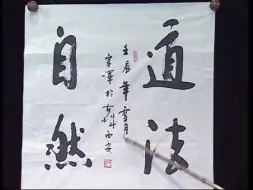 道法
自然
壬辰年雪月
於古城西安